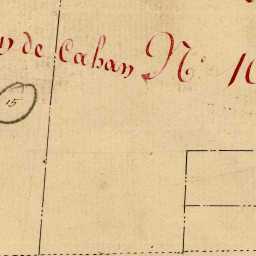 de Cahan N° 10
15